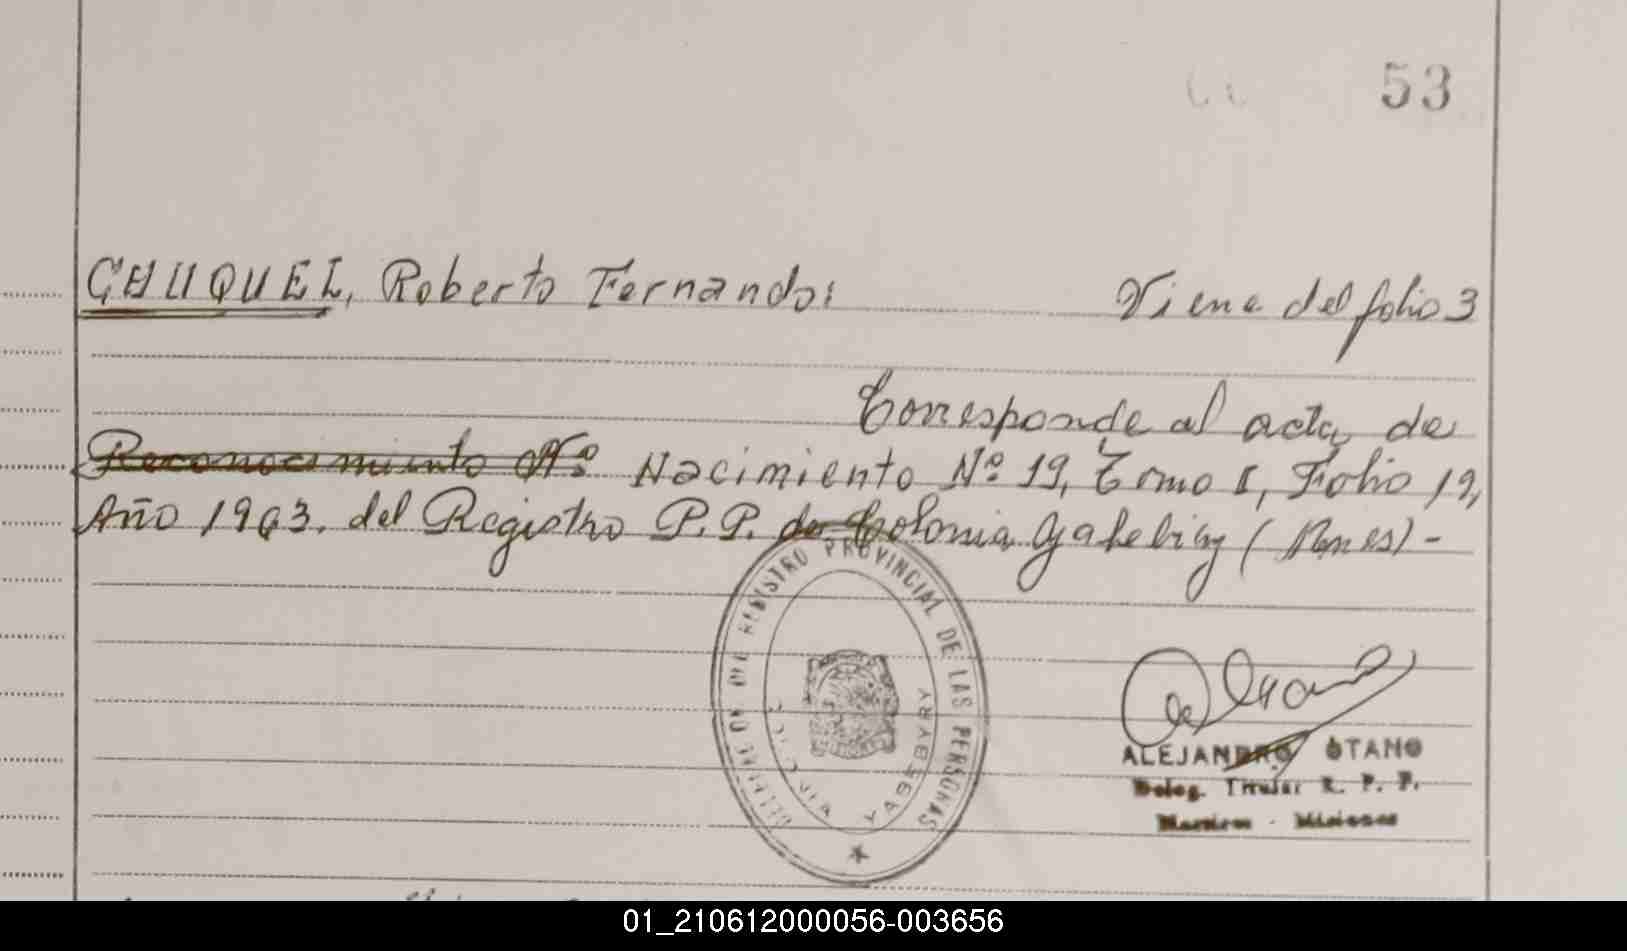 53
CHUQUEL, Roberto Fernando: Viene del folio 3
Corresponde al acta de
Reconocimiento Nº Nacimiento Nº 19, Tomo I, Folio 19,
Año 1963. del Registro P.P. de Colonia Yabebiry (
DE REGISTRO PROVINCIAL DE LAS PERSONAS
COLONIA YABEBIRY
ALEJANDRO OTANO
Deleg. Titular R. P. P.
Misiones
01_210612000056-003656